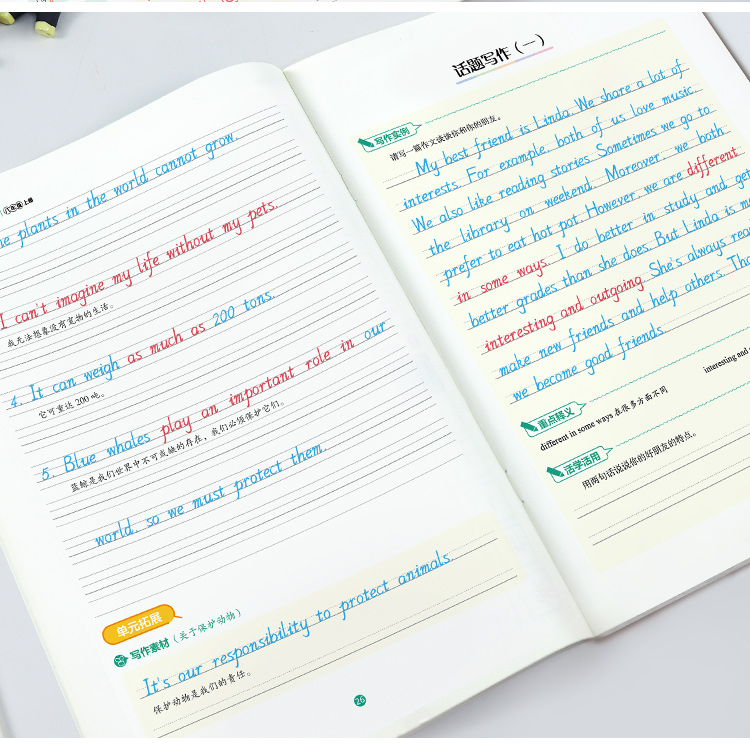 八年级上册
plants in the world cannot grow.
I can't imagine my life without my pets.
我无法想象没有宠物的生活。
4. It can weigh as much as 200 tons.
它可重达 200 吨。
5. Blue whales play an important role in our
蓝鲸是我们世界中不可或缺的存在，我们必须保护它们。
world, so we must protect them.
单元拓展
写作素材（关于保护动物）
It's our responsibility to protect animals.
保护动物是我们的责任。
26
话题写作（一）
写作实例
请写一篇作文谈谈你和你的朋友。
My best friend is Linda. We share a lot of
interests. For example, both of us love music.
We also like reading stories. Sometimes we go to
the library on weekend. Moreover, we both
prefer to eat hot pot. However, we are different
in some ways. I do better in study and get
better grades than she does. But Linda is
interesting and outgoing. She's always
make new friends and help others.
we become good friends.
重点释义
interesting and
different in some ways 在很多方面不同
活学活用
用两句话说说你的好朋友的特点。